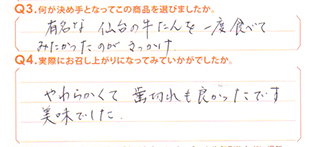 Q3.何が決め手となってこの商品を選びましたか。
有名な 仙台の牛たんを一度食べて
みたかったのがきっかけ
Q4.実際にお召し上がりになってみていかがでしたか。
やわらかくて 歯切れも良かったです
美味でした